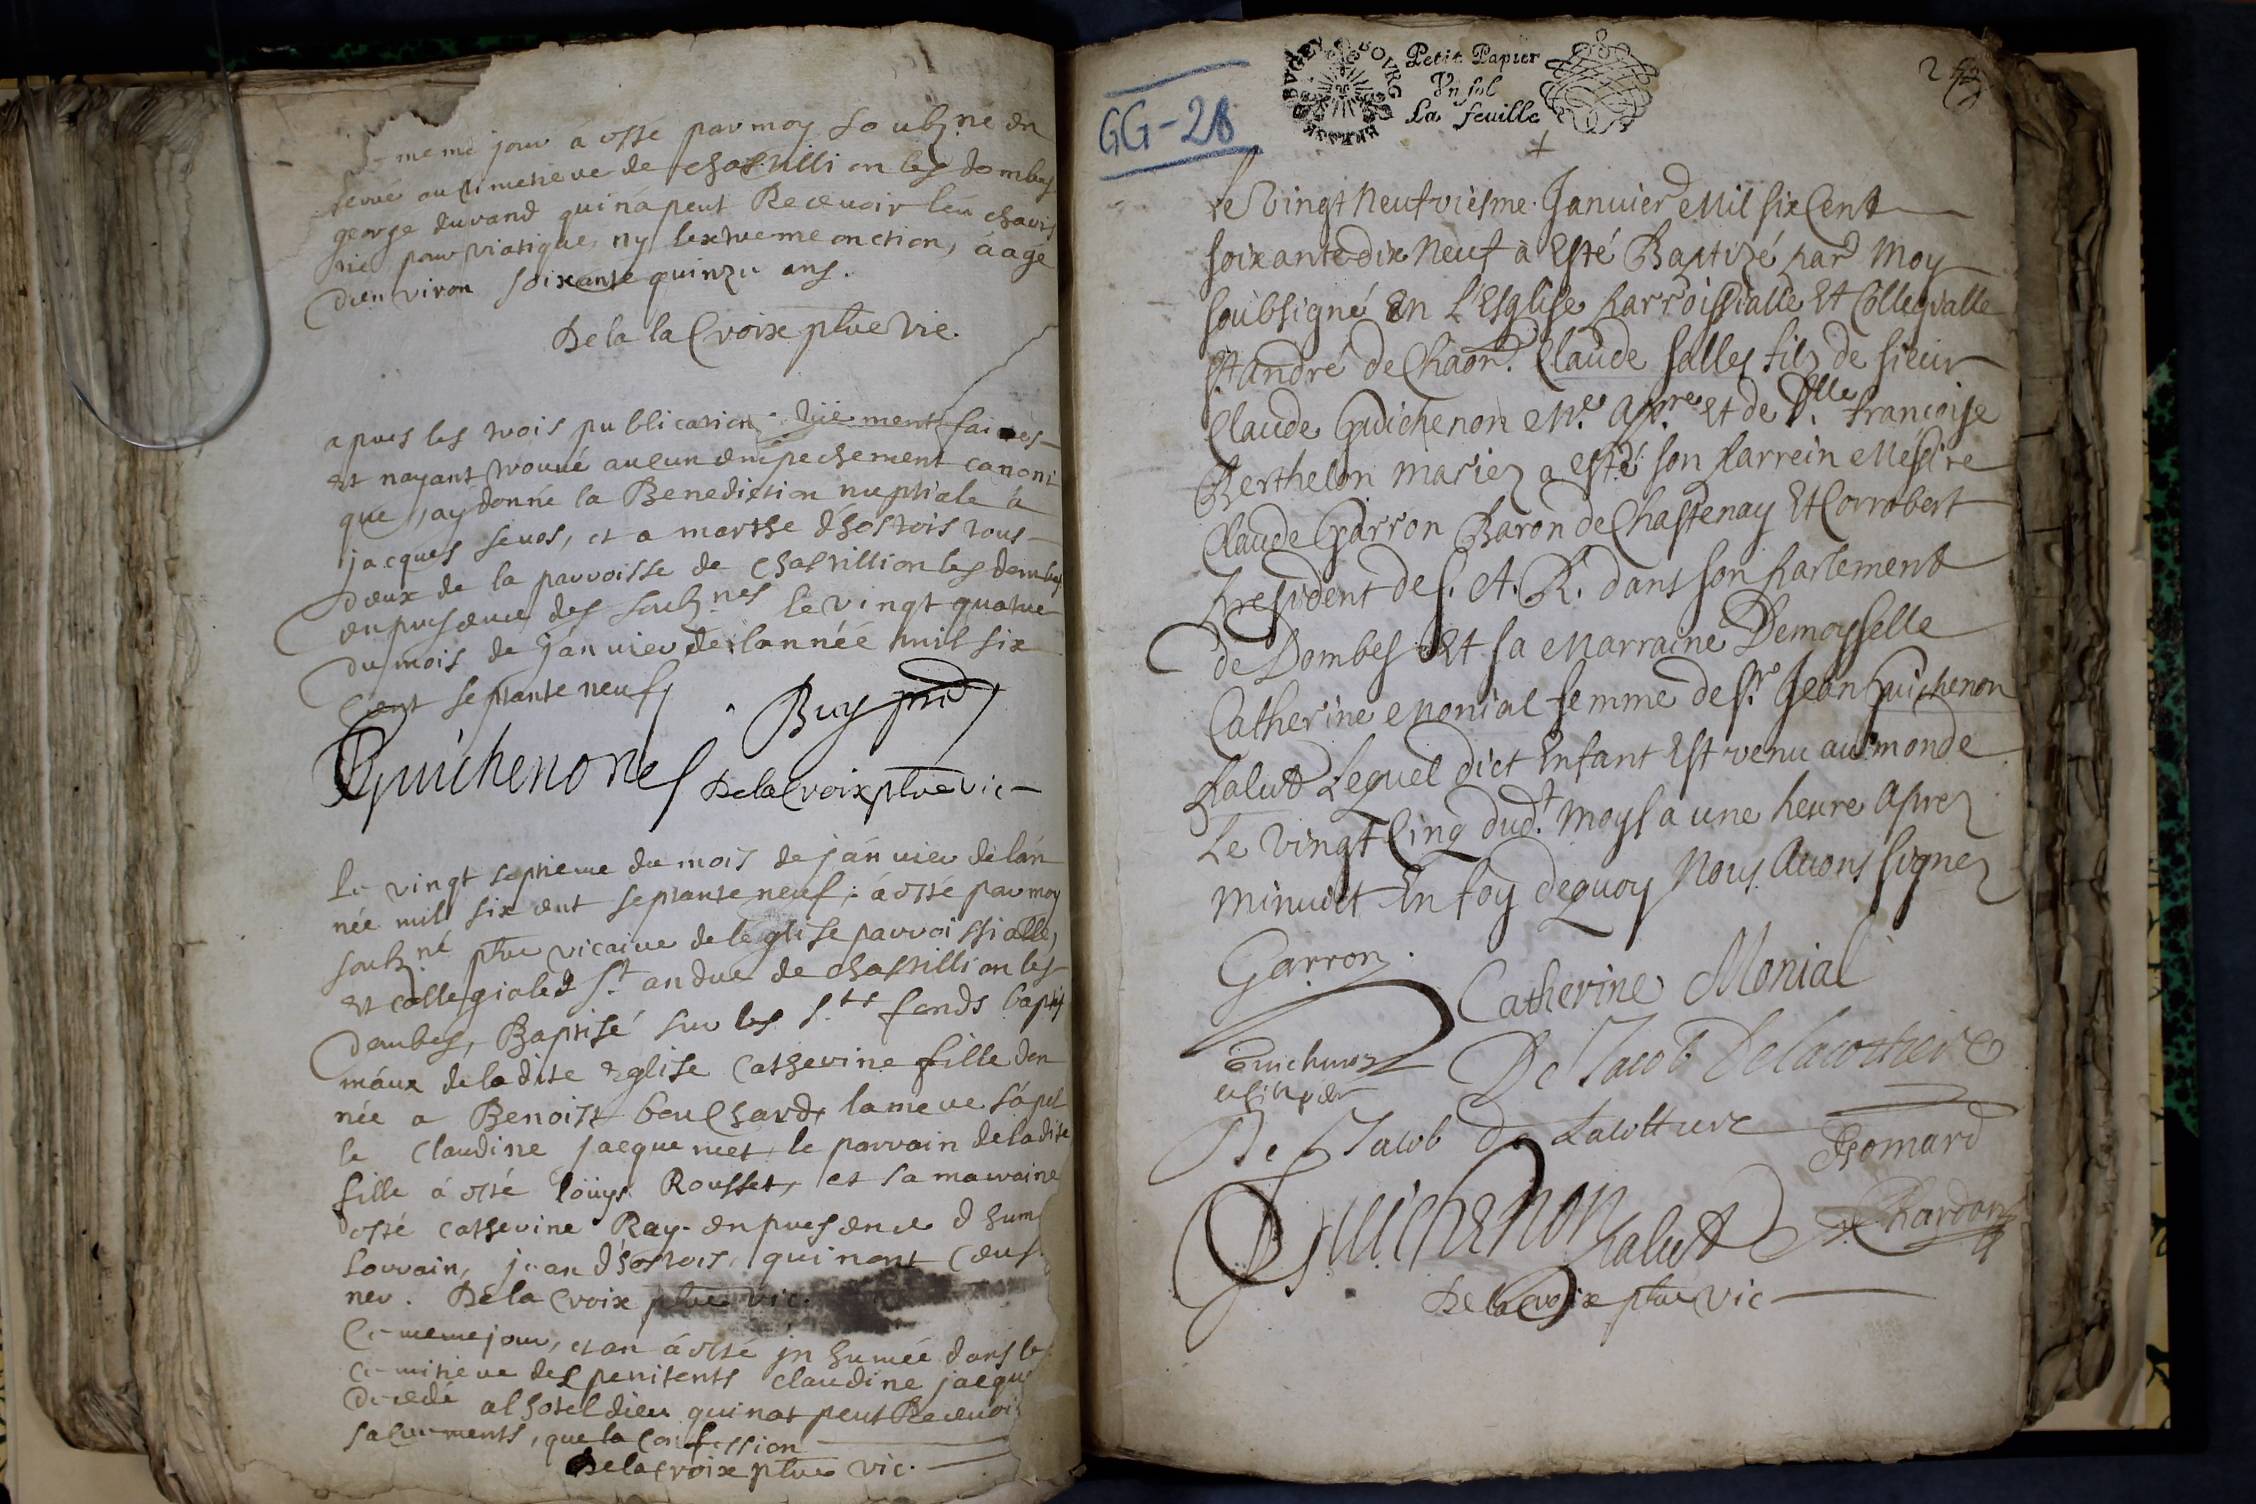 meme jour a esté par moy soubz.né en
terré au cimetiere de chastillion les dombes
george durand qui nà peut Recevoir len charis
tie pour viatique, ny lextreme onction, áagé
denviron soixante quinze ans.
De la la Croix ptre vic.
apres les trois publications faictes
et nayant trouué aucun empechement canoni
que j,ay donné la Benediction nuptiale à
jacques seuos, et a marthe dhostois tous
deux de la parroisse de chastillion les dombes
en presence des soubz.nes le vingt quatre
du mois de janvier de lannéé mil six
cent septante neuf,
Buy
Guichenon
Delacroix ptre vic
Le vingt septieme du mois de janvier de lán
née mil six cent septante neuf; à esté par moy
soubz.né ptre vicaire de leglise parroissialle,
et collegiale d St. andre de chastillion les
dombes, Baptisé sur les s.ts fonds baptis
máux de ladite Eglise Catherine fille don
née a Benoist bouchard, la mere sápel
le Claudine jacquemet, le parrain de ladite
fille à esté loüys Rousset, et sa marraine
esté catherine Ray. en presence d hum
Lorrain, jean dhostois, qui nont
ner. De la Croix ptre vic.
Ce meme jour, et an à esté in humée dans le
cimitiere des penitents claudine jacqu
decedé al hotel dieu qui nat peut Recevoir
sacrements, que la Confession
Delacroix ptre vic.
GG-28
BOVRG BVGEY
Petit Papier
Vn sol
La feuille
Le Vingt Neufviesme Januier Mil six Cent
soixante dix Neuf à Esté Baptizé par Moy
soubsigné En L'Esglise parroissialle Et Collegialle
St André de Chaon. Claude salles filz de sieur
Claude Guichenon M.e apo.re Et de D.lle françoise
Berthelon mariez a esté son parrein Messire
Claude Garron Baron de Chastenay Et Corrobert
president de S. A. R. dans son parlement
de Dombes Et sa Marraine Demoyselle
Catherine Monial femme de Sr. Jean Guichenon
palud Lequel dict Enfant Est venu au monde
Le Vingt Cinq dud.t Moys a une heure Aprez
Minuict En foy dequoy Nous Auons signez
Garron.
Catherine Monial
Guichenon
De Jacob Delacottiere
De Jacob De Lacottiere
Fromard
Guichenon palud
Chardon
De la Croix ptre vic